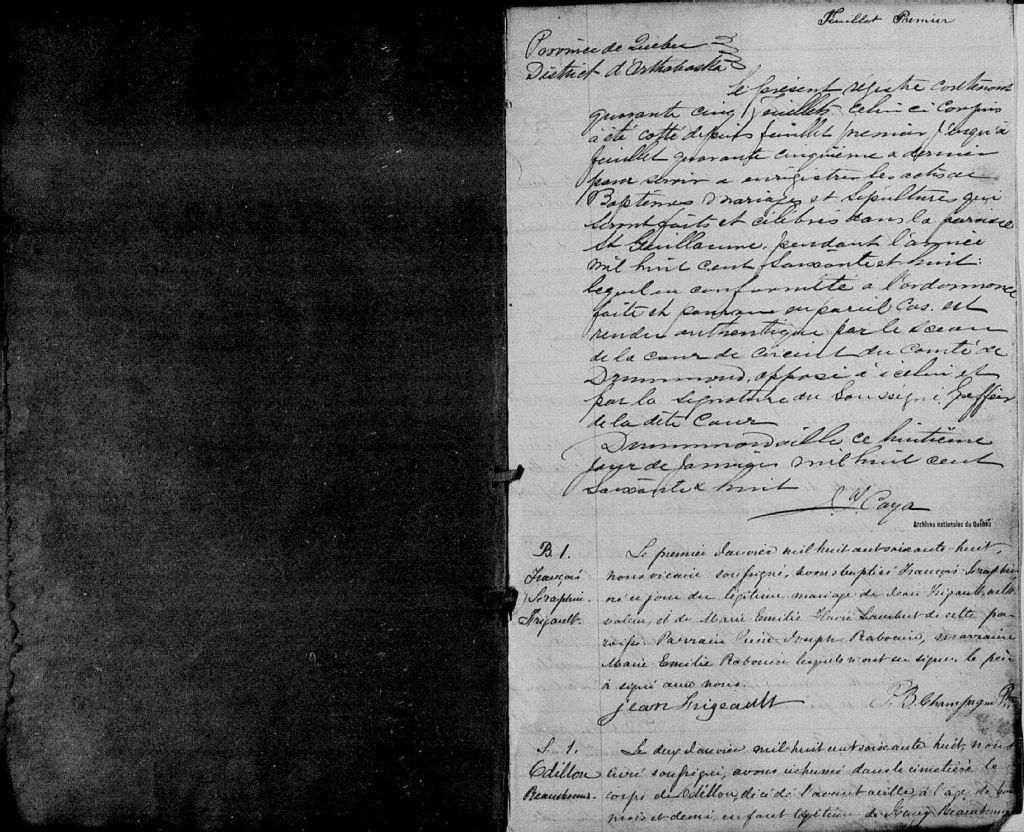 Feuillet Premier
Province de Quebec
District d'Arthabaska
Le présent régistre contenant
quarante cinq feuillets Celui ci Compris
a été cotté depuis feuillet premier jusqu'à
feuillet quarante cinquième & dernier
pour servir a enrégistrer les actes de
Baptêmes mariages et Sépultures qui
seront faits et célébrés dans la paroisse
St Guillaume, pendant l'année
mil huit cent Soixante et huit:
lequel en conformité a l'ordonnance
faite et pourvue en pareil Cas. est
rendu authentique par le Sceau
de la cour de circuit du Comté de
Drummond, apposé à icelui et
par la signature du Soussigné, Greffier
de la dite Cour
Drummondville ce huitième
jour de Janvier mil huit cent
Soixante & huit
Caya
Archives nationales du Québec
B. 1.
François
Séraphin
Trigault.
Le premier Janvier mil huit cent soixante-huit,
nous vicaire soussigné, avons baptisé François-Séraphin
né ce jour du légitime mariage de Jean Trigault, culti-
vateur, et de Marie Emilie Lambert de cette pa-
roisse. Parrain Joseph Rabouin, marraine
Marie Emilie Rabouin lesquels n'ont su signer, le père
a signé avec nous.
jean trigeault
J. B. Champagne Ptre
S. 1.
Odillon
Beauchemin.
Le deux Janvier mil huit cent soixante huit, nous
curé soussigné, avons inhumé dans le cimetière le
corps de Odillon, décédé l'avant veille, à l'age de
mois et demi, enfant légitime de Beauchemin